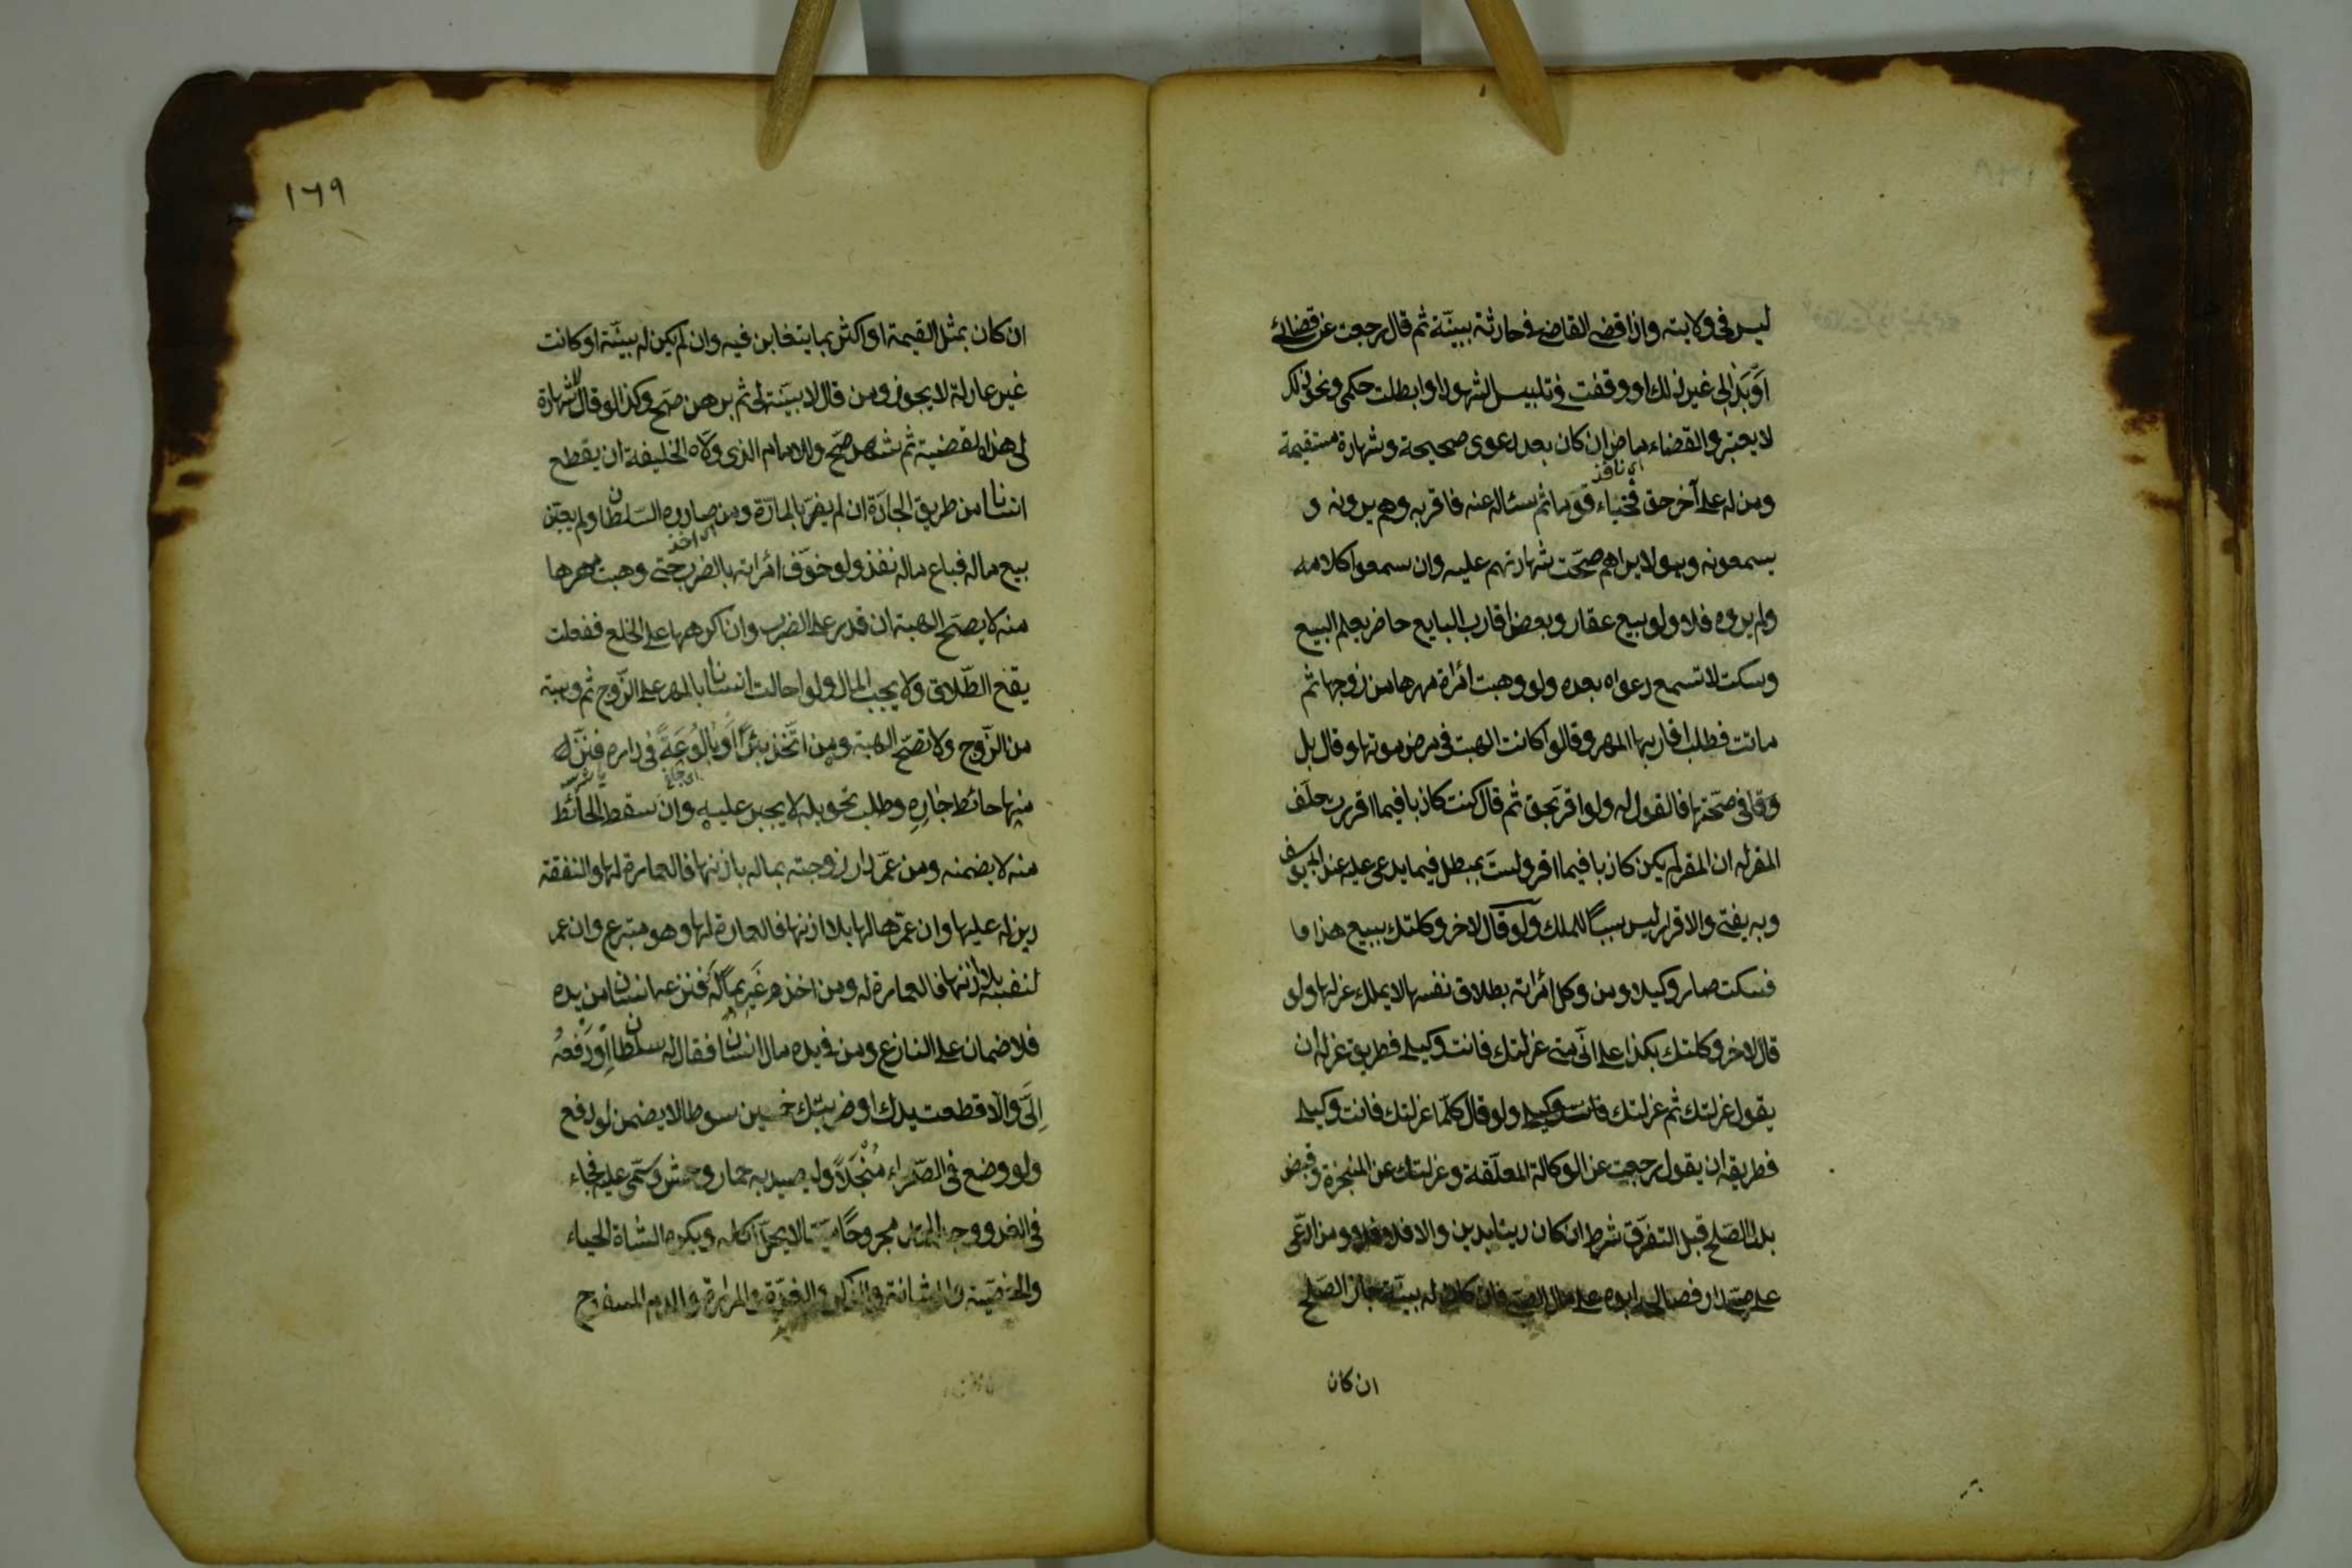 ليس في ولايته واذا قضى القاضي في حادثة ببينّة ثم قال رجعت عن قضائي
اوّبَدَا لي غير ذلك او وقفت في تلبيس الشهود او ابطلت حكمي ونحو ذلك
لا يعتبر والقضاء ماض ان كان بعد دعوى صحيحة وشهادة مستقيمة
اي نافذ
ومن له على آخر حق فخباء قوما ثم سئاله عنه فاقر به وهم يرونه و
يسمعونه وهو لا يراهم صحّت شهادتهم عليه وان سمعوا كلامه
ولم يروه فلا ولو بيع عقار وبعض اقارب البايع حاضر يعلم البيع
وسكت لا تسمع دعواه بعده ولو وهبت امرأة مهرها من زوجها ثم
ماتت فطلب اقاربها المهر وقالوا كانت الهبت في مرض موتها وقال بل
وقا في صحّتها فالقول له ولو اقرّ بحق ثم قال كنت كاذبا فيما اقررت حلّف
المقر له ان المقر لم يكن كاذبا فيما اقر ولستَ بمبطل فيما يدعى عليه عند ابي يوسف
وبه يفتى والاقرار ليس سببًا للملك ولو قال لاخر وكلتك ببيع هذا
فسكت صار وكيلا ومن وكل امرأته بطلاق نفسها لا يملك عزلها ولو
قال لاخر وكلتك بكذا على انّي متى عزلتك فانت وكيلي فطريق عزله ان
يقول عزلتك ثم عزلتك ولو قال كلّما عزلتك فانت وكيلي
فطريقه ان يقول رجعت عن الوكالة المعلّقة وعزلتك عن المنجزة وقبض
بدل الصّلح قبل التفرّق شرط ان كان دينا بدين والا فلا ومن ادّعى
على صبي دار فصالحه ابوه على مال الصبي فان كان له بينّة جاز الصّلح
ان كان
١٦٩
ان كان بمثل القيمة او اكثر بما يتغابن فيه وان لم يكن له بينّة او كانت
غير عادلة لا يجوز ومن قال لا بينّة لي ثم برهن صحّ وكذا لو قال لا شهادة
لي هذه القضية ثم شهد صحّ والامام الذي ولّاه الخليفة ان يقطع
انسانا من طريق الجادّة ان لم يضرّ بالمارّة ومن صادره السّلطان ولم يعيّن
اي اخذ
بيع ماله فباع ماله نفذ ولو خوّف امرأته بالضرب حتى وهبت مهرها
منه لا يصحّ الهبة ان قدر على الضرب وان اكرهها على الخلع ففعلت
يقع الطّلاق ولا يجب المال ولو احالت انسانا بالمهر على الزّوج ثم وهبته
من الزّوج ولا تصحّ الهبة ومن اتّخذ بئرًا اَو بالُوعَةً في داره فنزّ له
منها حائط جارِهِ وطلب تحويله لا يجبر عليه وان سقط الحائط
منه لا يضمنه ومن عمّر دار زوجته بماله باذنها فالعمارة لها والنفقة
دين له عليها وان عمّرها لها بلا اذنها فالعمارة لها وهو متبرع وان عمر
لنفسه بلا اذنها فالعمارة له ومن اخذ غَريمًا لَه فنزعه انسان من يده
فلا ضمان على النازع ومن في يده مال انسان فقال له سلطان اِدْفَعهُ
اِلَيَّ والّا قطعت يدك او ضربتك خمسين سوطا لا يضمن لو دفع
ولو وضع في الصّحراء مُنْجَلًا وليصيد به حمار وحش وسمّى عليه فجاء
في الغد ووجد الحمار مجروحًا ميّتا لا يحلّ اكله ويكره من الشاة الحياء
والخصية والمثانة والذكر والغدّة والمرارة والدم المسفوح